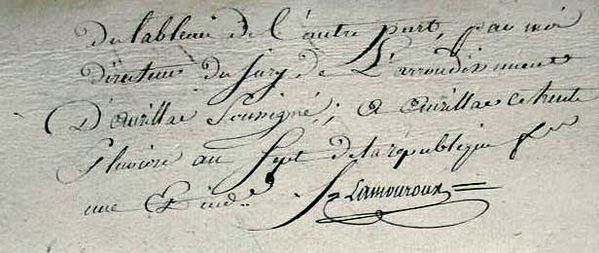 Du tableau de l'autre part, par moi
directeur du jury de L'arrondissement
D'aurillac soussigné; a aurillac ce trente
pluviose an sept de la république f̶
une et ind..
Lamouroux